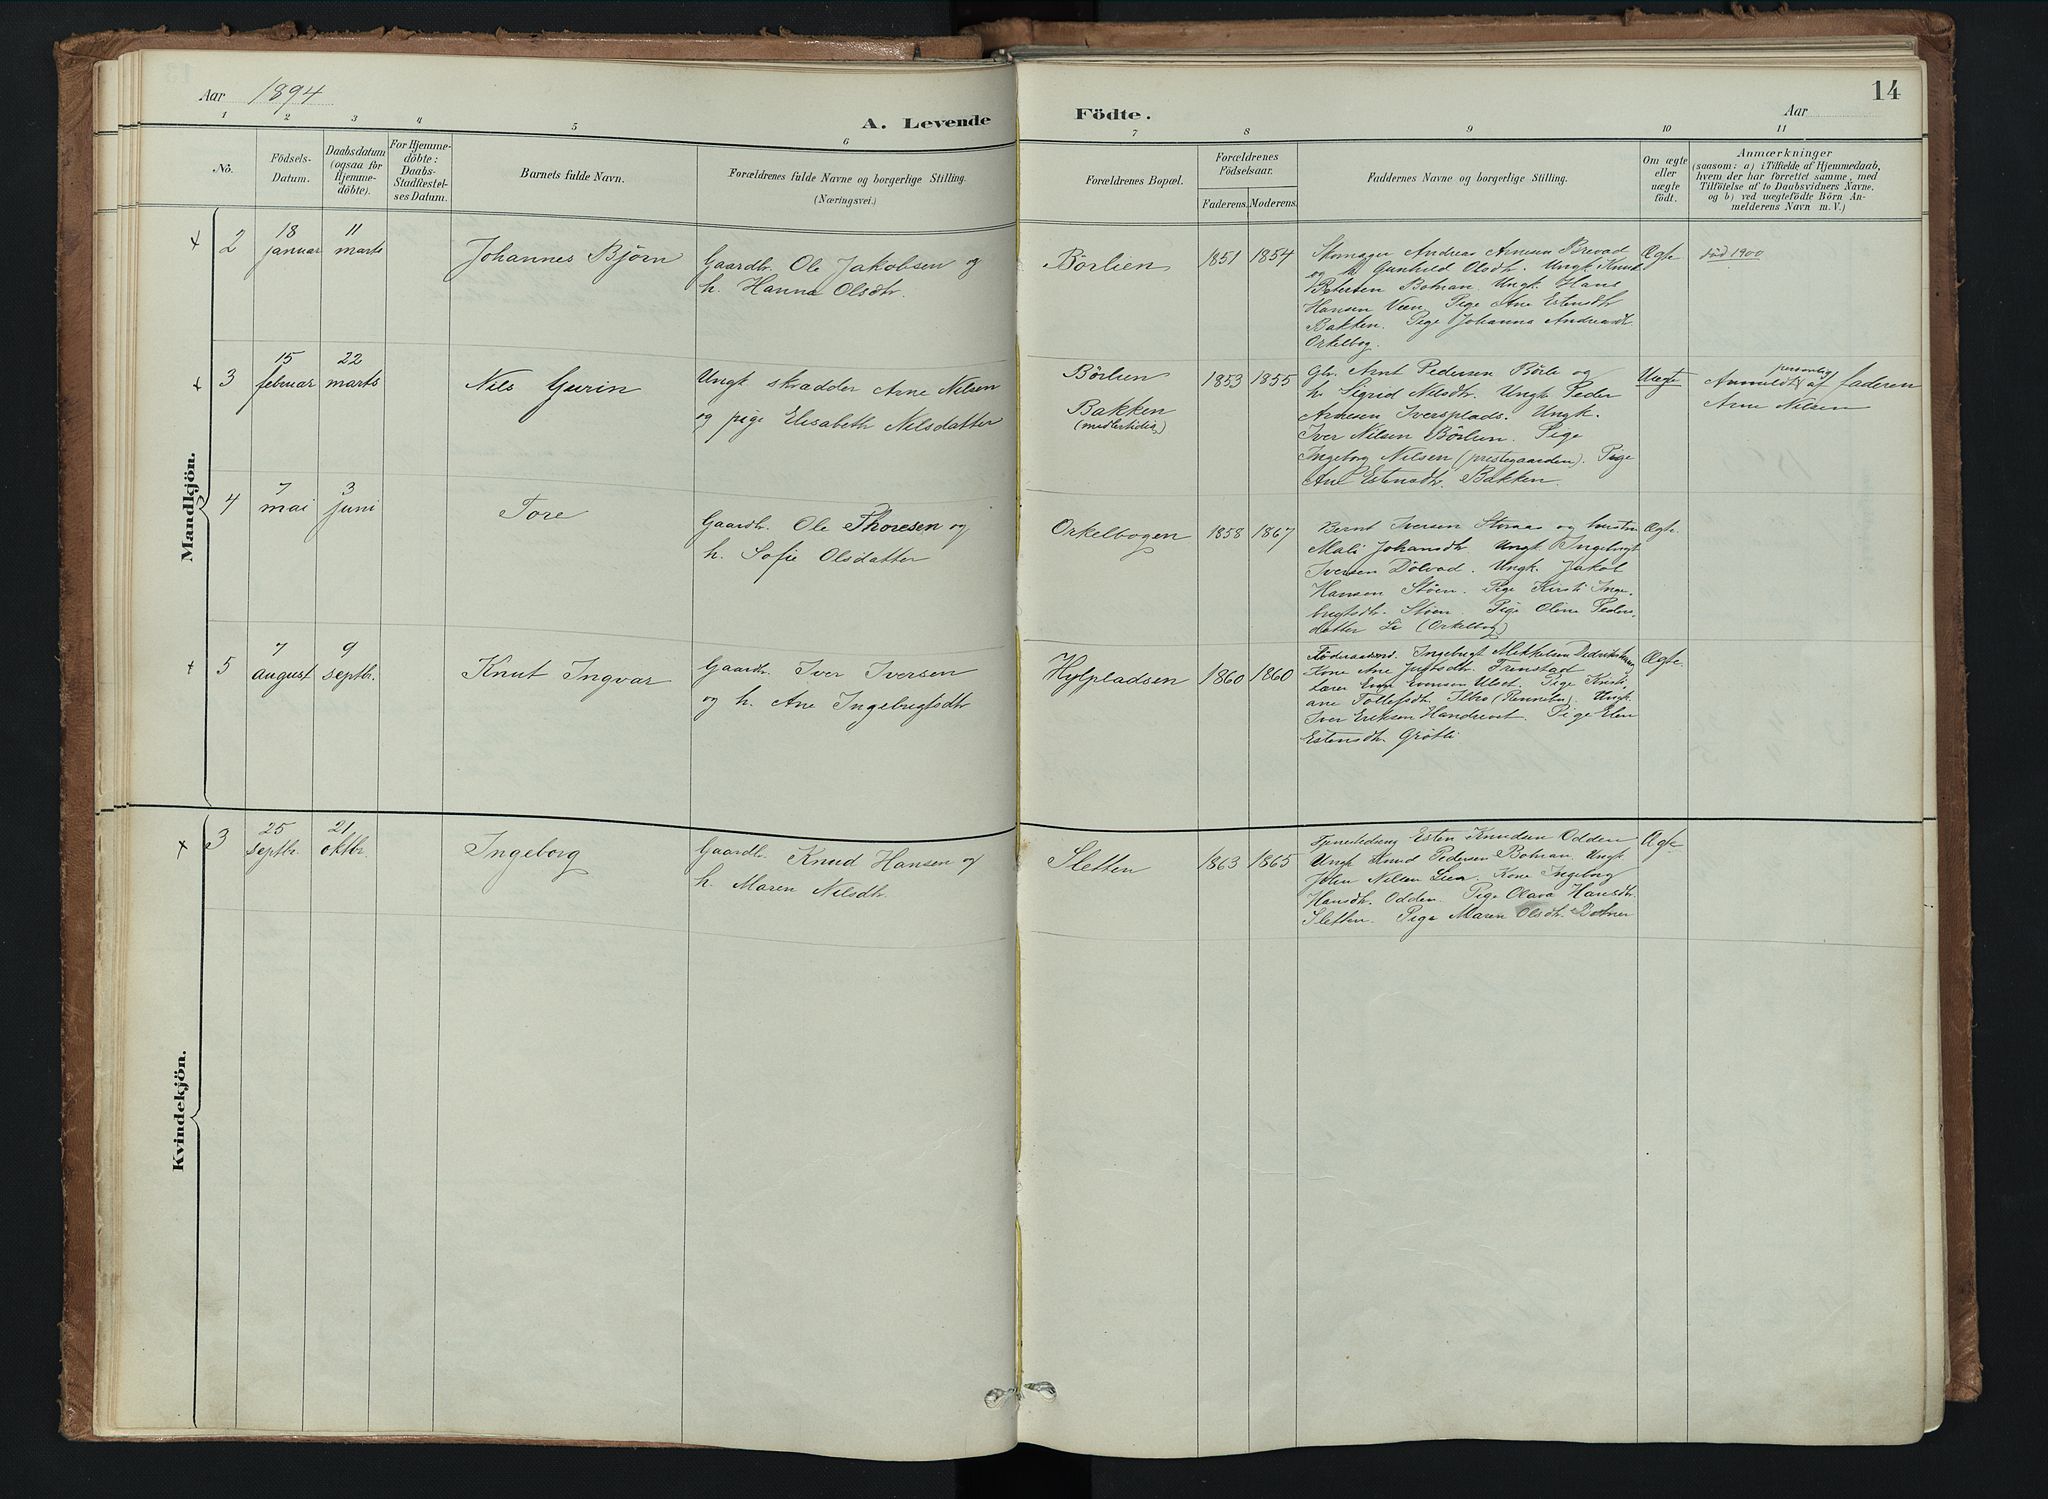 Aar 1894
A. Levende Födte.
Aar
14
1 2 3 4 5 6 7 8 9 10 11
No.
Födsels-
Datum.
Daabsdatum
(ogsaa for
Hjemme-
döbte).
For Hjemme-
döbte:
Daabs-
Stadfæstel-
ses Datum.
Barnets fulde Navn.
Forældrenes fulde Navne og borgerlige Stilling.
(Næringsvei.)
Forældrenes Bopæl.
Forældrenes
Födselsaar.
Faderens. Moderens.
Faddernes Navne og borgerlige Stilling.
Om ægte
eller
uægte
födt.
Anmærkninger
(saasom: a) i Tilfælde af Hjemmedaab,
hvem der har forrettet samme, med
Tilföielse af to Daabsvidners Navne,
og b) ved uægtefödte Börn An-
melderens Navn m. V.)
Mandkjön.
2
18
januar
11
marts
Johannes Bjørn
Gaardbr. Ole Jakobsen og
h. Hanna Olsdtr.
Börlien
1851 1854
Skomager Andreas Arnesen Brevad
og h. Gunhild Olsdtr. Ungk. Knud
Botnan. Ungk. Hans
Hansen Veen. Pige Ane Estensdtr
Bakken. Pige Johanna Andreasdtr
Orkelbog.
Ægte
död 1900
3
15
februar
22
marts
Nils Gurin
Ungk. skrædder Arne Nilsen
og pige Elisabeth Nilsdatter
Börlien
Bakken
(medlertidig)
1853 1855
Gbr. Arnt Pedersen Börli og
h. Sigrid Nilsdtr. Ungk. Peder
Arnesen Iversplads. Ungk.
Iver Nilsen Börlien. Pige
Ingeborg Nilsen (prestegaarden). Pige
Ane Estensdtr. Bakken.
Uægte
Anmeldt personlig af faderen
Arne Nilsen
4
7
mai
3
juni
Tore
Gaardbr. Ole Thoresen og
h. Sofie Olsdatter
Orkelbogen
1858 1867
Bernt Iversen og hustru
Mali Johansdtr. Ungk. Ingebrigt
Iversen Dölvad. Ungk. Jakob
Hansen Stöen. Pige Kirsti Inge-
brigtsdtr. Stöen. Pige Oline Peders-
datter Li (Orkelbog)
Ægte.
5
7
august
9
septbr.
Knut Ingvar
Gaardbr. Iver Iversen
og h. Ane Ingebrigtsdtr
Hylpladsen
1860 1860
Föderaadsmd. Ingebrigt Mikkelsen
Kone Ane
Lærer Ulset. Pige Kristi-
ane Tollefsdtr. (Rennebu). Ungk.
Iver Eriksen. Pige Elen
Estensdtr. Grötli
Ægte.
Kvindekjön.
3
25
septbr.
21
oktbr.
Ingeborg
Gaardbr. Knud Hansen og
h. Maren Nilsdtr.
Sletten
1863 1865
Esten Knudsen Odden
Ungk Knud Pedersen Botnan. Ungk
John Nilsen Lien. Kone Ingeborg
Hansdtr. Odden. Pige Olava Hansdtr.
Sletten. Pige Maren Olsdtr.
Ægte